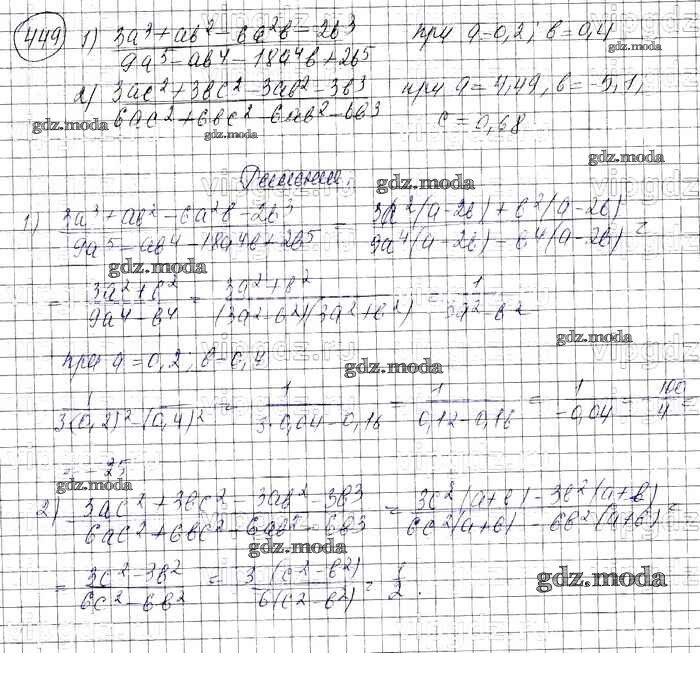 449 1) (3a³ + ab² - 6a²b - 2b³) / (9a⁵ - ab⁴ - 18a⁴b + 2b⁵) при a = 0,2; b = 0,4
2) (3ac² + 3bc² - 3ab² - 3b³) / (6ac² + 6bc² - 6ab² - 6b³) при a = 4,49, b = -5,1,
c = 0,68
Решение.
1) (3a³ + ab² - 6a²b - 2b³) / (9a⁵ - ab⁴ - 18a⁴b + 2b⁵) = (3a²(a - 2b) + b²(a - 2b)) / (9a⁴(a - 2b) - b⁴(a - 2b)) =
= (3a² + b²) / (9a⁴ - b⁴) = (3a² + b²) / ((3a² - b²)(3a² + b²)) = 1 / (3a² - b²)
при a = 0,2; b = 0,4
1 / (3(0,2)² - (0,4)²) = 1 / (3·0,04 - 0,16) = 1 / (0,12 - 0,16) = 1 / (-0,04) = 100 / 4 =
= -25
2) (3ac² + 3bc² - 3ab² - 3b³) / (6ac² + 6bc² - 6ab² - 6b³) = (3c²(a + b) - 3b²(a + b)) / (6c²(a + b) - 6b²(a + b)) =
= (3c² - 3b²) / (6c² - 6b²) = 3(c² - b²) / 6(c² - b²) = 1/2.
gdz.moda
gdz.moda
gdz.moda
gdz.moda
gdz.moda
gdz.moda
gdz.moda
gdz.moda
gdz.moda
gdz.moda
gdz.moda